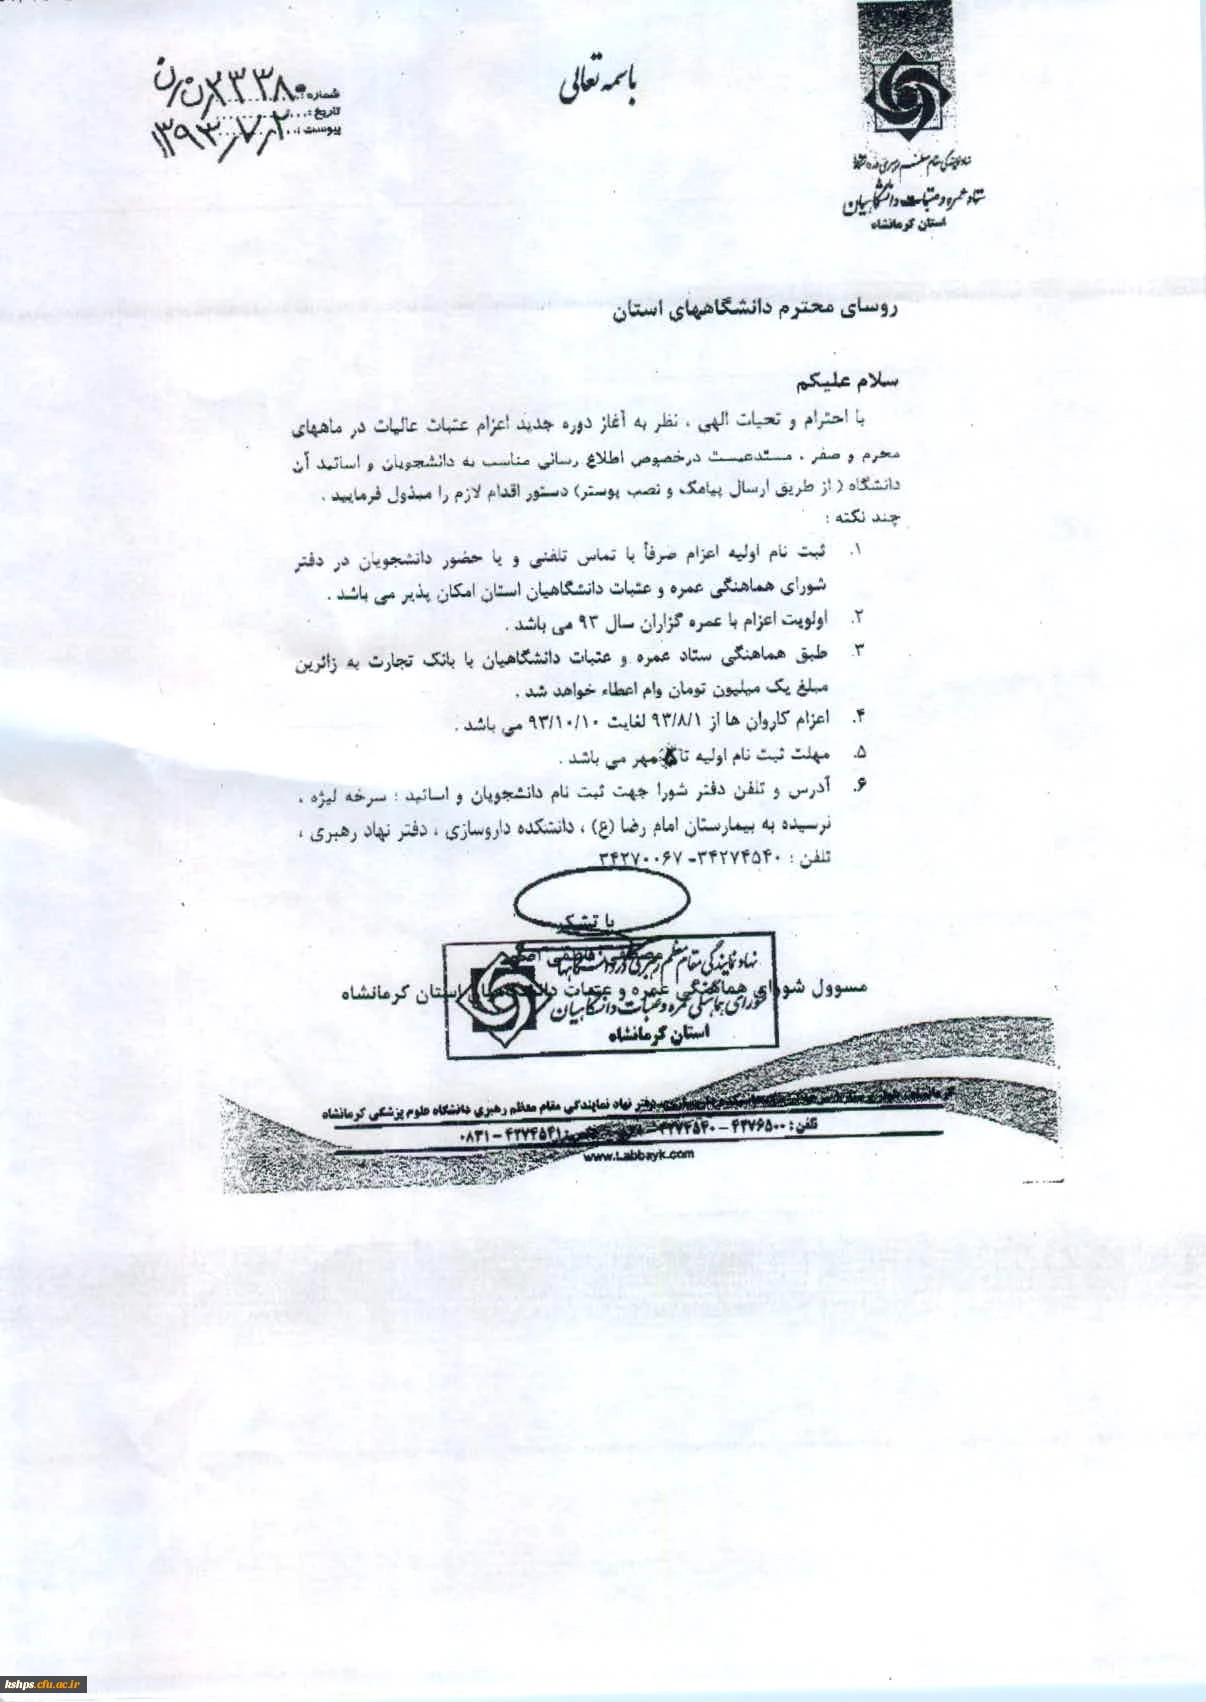 باسمه تعالی
شماره:
تاریخ:
پیوست:
۱۳۹۳/۷/۲
ستاد عمره و عتبات دانشگاهیان
استان کرمانشاه
روسای محترم دانشگاههای استان
سلام علیکم
با احترام و تحیات الهی ، نظر به آغاز دوره جدید اعزام عتبات عالیات در ماههای
محرم و صفر ، مستدعیست درخصوص اطلاع رسانی مناسب به دانشجویان و اساتید آن
دانشگاه ( از طریق ارسال پیامک و نصب پوستر) دستور اقدام لازم را مبذول فرمایید .
چند نکته :
۱. ثبت نام اولیه اعزام صرفاً با تماس تلفنی و یا حضور دانشجویان در دفتر
شورای هماهنگی عمره و عتبات دانشگاهیان استان امکان پذیر می باشد .
۲. اولویت اعزام با عمره گزاران سال ۹۳ می باشد .
۳. طبق هماهنگی ستاد عمره و عتبات دانشگاهیان با بانک تجارت به زائرین
مبلغ یک میلیون تومان وام اعطاء خواهد شد .
۴. اعزام کاروان ها از ۹۳/۸/۱ لغایت ۹۳/۱۰/۱۰ می باشد .
۵. مهلت ثبت نام اولیه تا مهر می باشد .
۶. آدرس و تلفن دفتر شورا جهت ثبت نام دانشجویان و اساتید : سرخه لیژه ،
نرسیده به بیمارستان امام رضا (ع) ، دانشکده داروسازی ، دفتر نهاد رهبری ،
تلفن : ۳۴۲۷۴۵۴۰- ۳۴۲۷۰۰۶۷
با تشکر
مسوول شورای هماهنگی عمره و عتبات دانشگاهیان استان کرمانشاه
نهاد نمایندگی مقام معظم رهبری در دانشگاهها
شورای هماهنگی عمره و عتبات دانشگاهیان
استان کرمانشاه
دفتر نهاد نمایندگی مقام معظم رهبری دانشگاه علوم پزشکی کرمانشاه
تلفن: ۴۲۷۶۵۰۰ - ۴۲۷۴۵۴۰ - ۴۲۷۴۵۴۱ - ۰۸۳۱
www.Labbayk.com
kshps.cfu.ac.ir